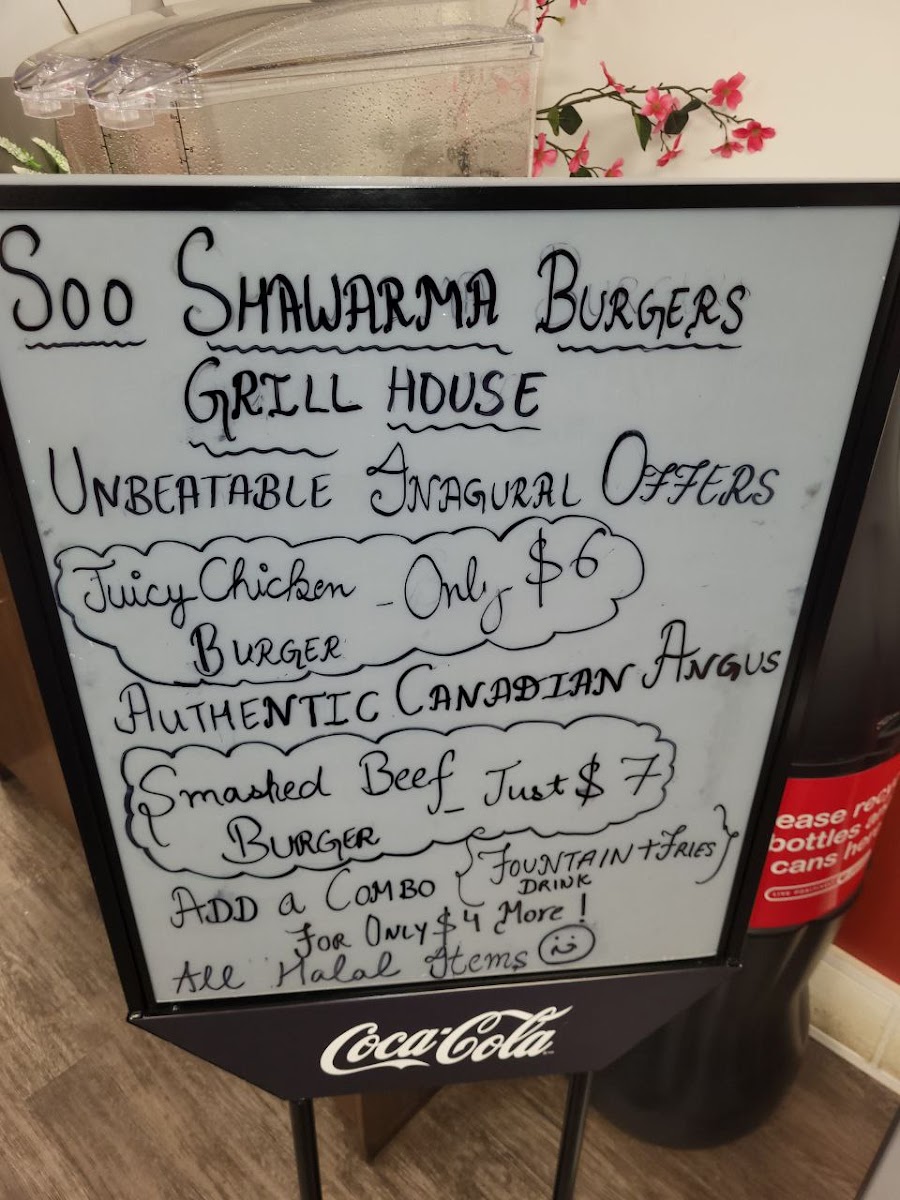 Soo SHAWARMA BURGERS
GRILL HOUSE
UNBEATABLE INAGURAL OFFERS
Juicy Chicken - Only $6
BURGER
AUTHENTIC CANADIAN ANGUS
Smashed Beef - Just $7
BURGER
ADD a COMBO {FOUNTAIN + FRIES}
DRINK
FOR ONLY $4 More!
All Halal Items
Coca-Cola
ease recy
bottles a
cans he